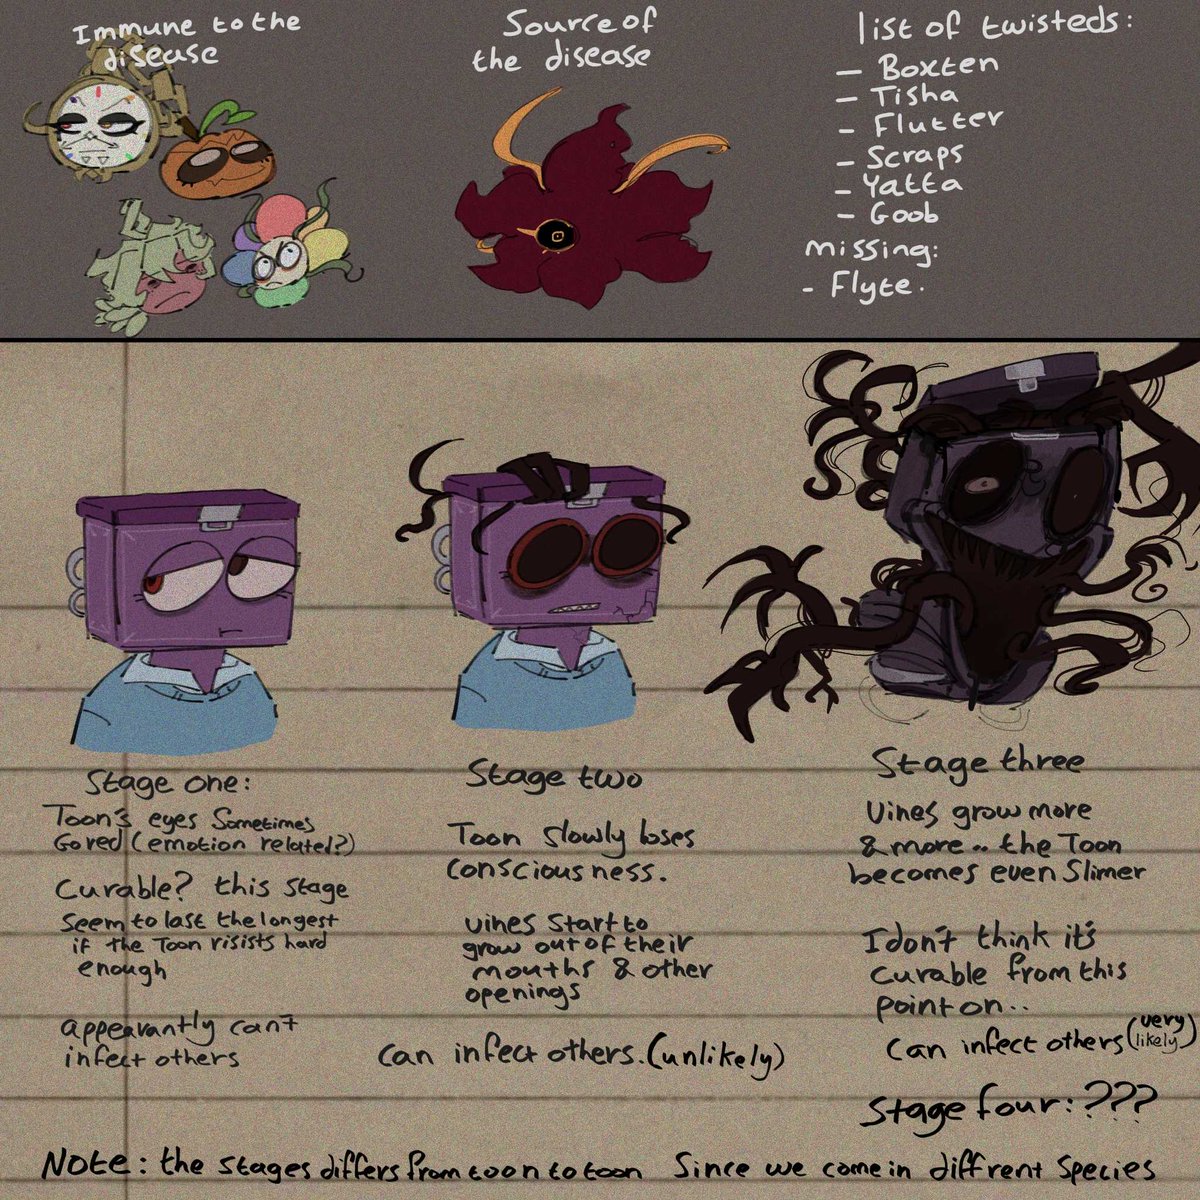 Immune to the
disease
Source of
the disease
list of twisteds:
- Boxten
- Tisha
- Flutter
- Scraps
- Yatta
- Goob
missing:
- Flyte.
Stage one:
Toon's eyes sometimes
Go red (emotion related?)
Curable? this stage
seem to last the longest
if the Toon risists hard
enough
appearantly can't
infect others
Stage two
Toon slowly loses
consciousness.
vines start to
grow out of their
mouths & other
openings
can infect others. (unlikely)
Stage three
Vines grow more
& more.. the Toon
becomes even Slimer
I don't think it's
curable from this
point on..
can infect others (very
likely)
Stage four: ???
Note: the stages differs from toon to toon Since we come in diffrent species